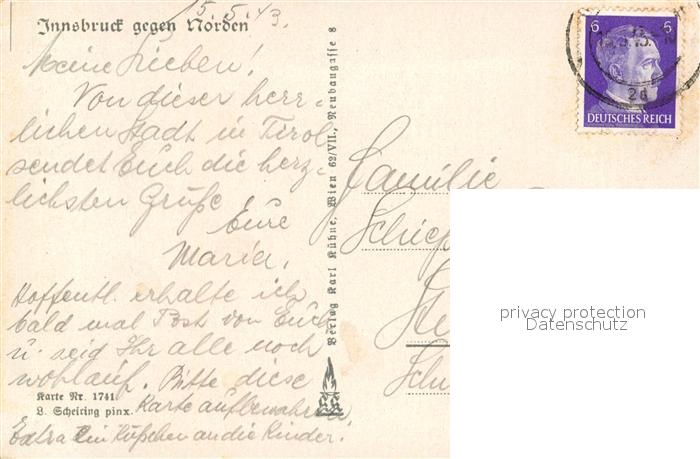 15.5.43.
Innsbruck gegen Norden
Meine Lieben!
Von dieser herr-
lichen Stadt in Tirol
sendet Euch die herz-
lichsten Grüße
Eure
Maria.
Hoffentl. erhalte ich
bald mal Post von Euch
u. seid Ihr alle noch
wohlauf. Bitte diese
Karte aufbewahren
Extra ein Küßchen an die Kinder.
Karte Nr. 1741.
L. Scheiring pinx.
Verlag Karl Kühne, Wien 62/VII., Neubaugasse 8
6 6
DEUTSCHES REICH
2d
Familie
privacy protection
Datenschutz